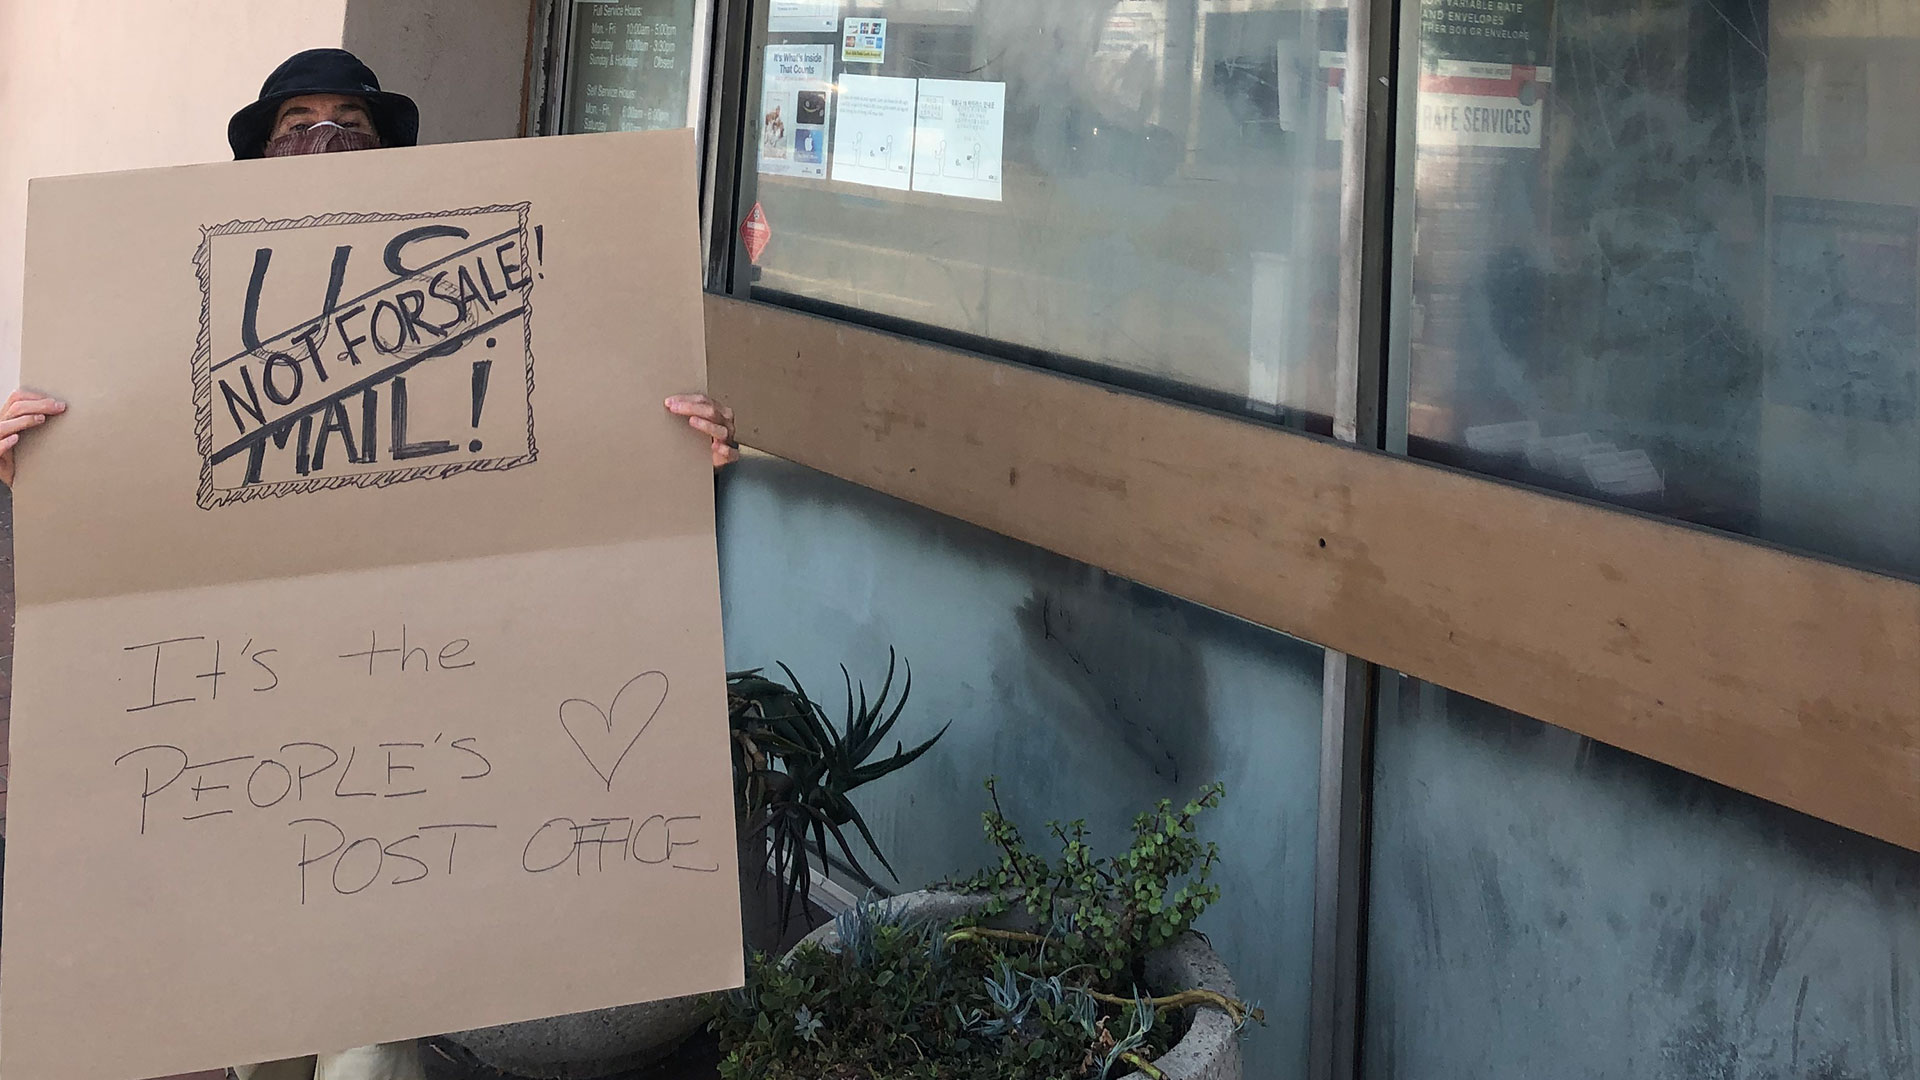 US
NOT FOR SALE!
MAIL!
It's the
PEOPLE'S
POST OFFICE
Full Service Hours:
Mon - Fri 10:00am - 5:00pm
Saturday 10:00am - 3:30pm
Sunday & Holidays Closed
Self Service Hours:
Mon - Fri
Saturday
It's What's Inside
That Counts
VARIABLE RATE
AND ENVELOPES
BOX OR ENVELOPE
RATE SERVICES